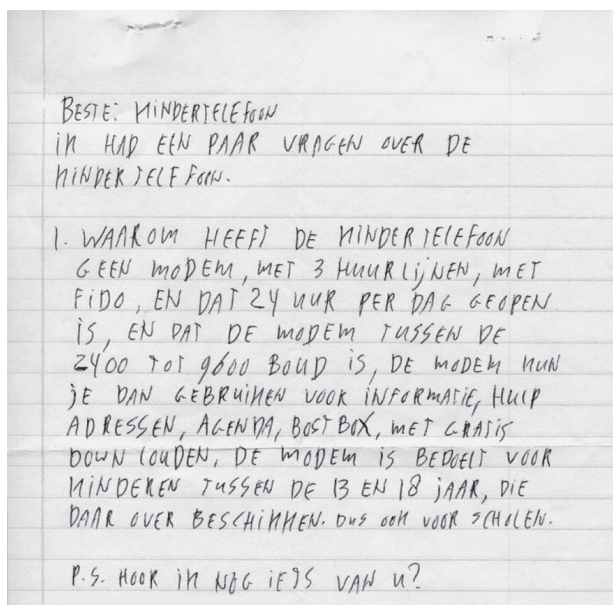 BESTE: KINDERTELEFOON
IK HAD EEN PAAR VRAGEN OVER DE
KINDERTELEFOON.
1. WAAROM HEEFT DE KINDERTELEFOON
GEEN MODEM, MET 3 HUURLIJNEN, MET
FIDO, EN DAT 24 UUR PER DAG GEOPEN
IS, EN DAT DE MODEM TUSSEN DE
2400 TOT 9600 BOUD IS, DE MODEM KUN
JE DAN GEBRUIKEN VOOR INFORMATIE, HULP
ADRESSEN, AGENDA, BOSTBOX, MET GRATIS
DOWN LOUDEN, DE MODEM IS BEDOELT VOOR
KINDEREN TUSSEN DE 13 EN 18 JAAR, DIE
DAAR OVER BESCHIKKEN. DUS OOK VOOR SCHOLEN.
P.S. HOOR IK NOG IETS VAN U?